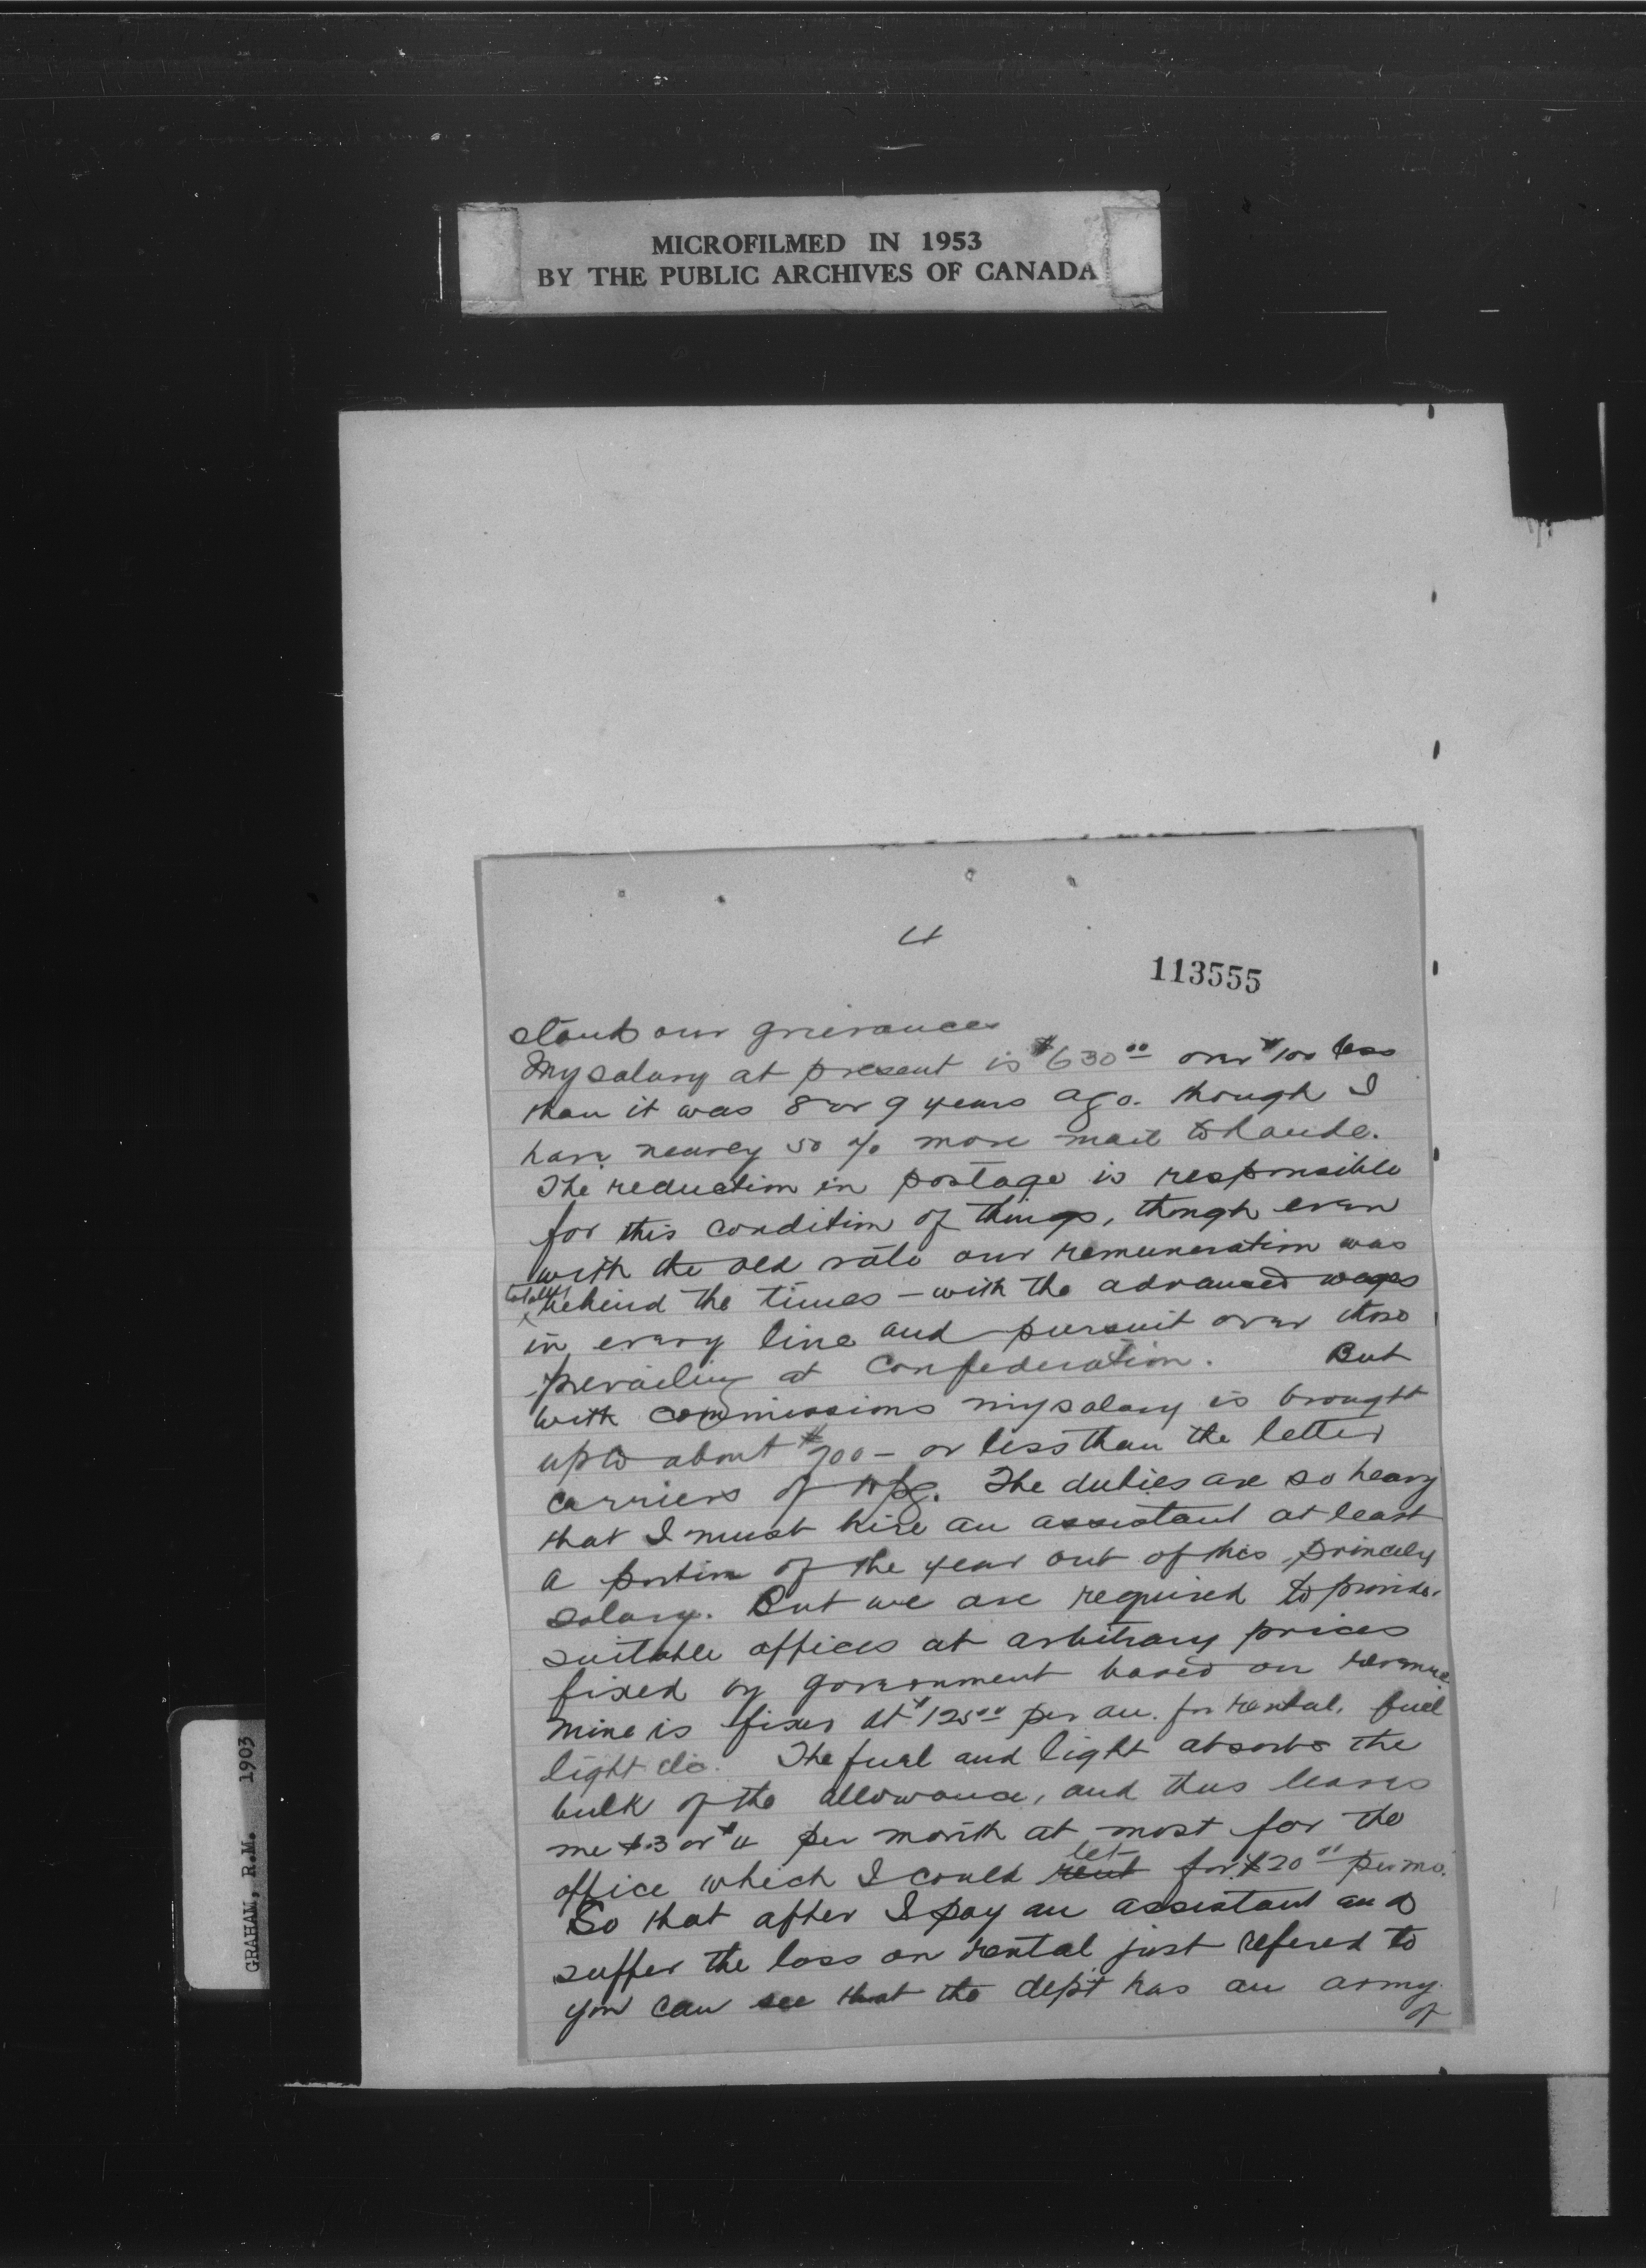 MICROFILMED IN 1953
BY THE PUBLIC ARCHIVES OF CANADA
4
113555
stand our grievances
My salary at present is $630.00 over $100 less
than it was 8 or 9 years ago. though I
have nearly 50 % more mail to handle.
The reduction in postage is responsible
for this condition of things, though even
with the old rate our remuneration was
totally behind the times - with the advanced wages
in every line and pursuit over those
prevailing at Confederation. But
with commissions my salary is brought
up to about $700 - or less than the letter
carriers of Wpg. The duties are so heavy
that I must hire an assistant at least
a portion of the year out of this princely
salary. But we are required to provide
suitable offices at arbitrary prices
fixed by government based on revenue
mine is fixed at $125.00 per an. for rental, fuel
light etc. The fuel and light absorbs the
bulk of the allowance, and thus leaves
me $3 or $4 per month at most for the
office which I could rent let for $20.00 per mo.
So that after I pay an assistant and
suffer the loss on rental just refered to
you can see that the dept has an army
of
GRAHAM, R.M. 1903